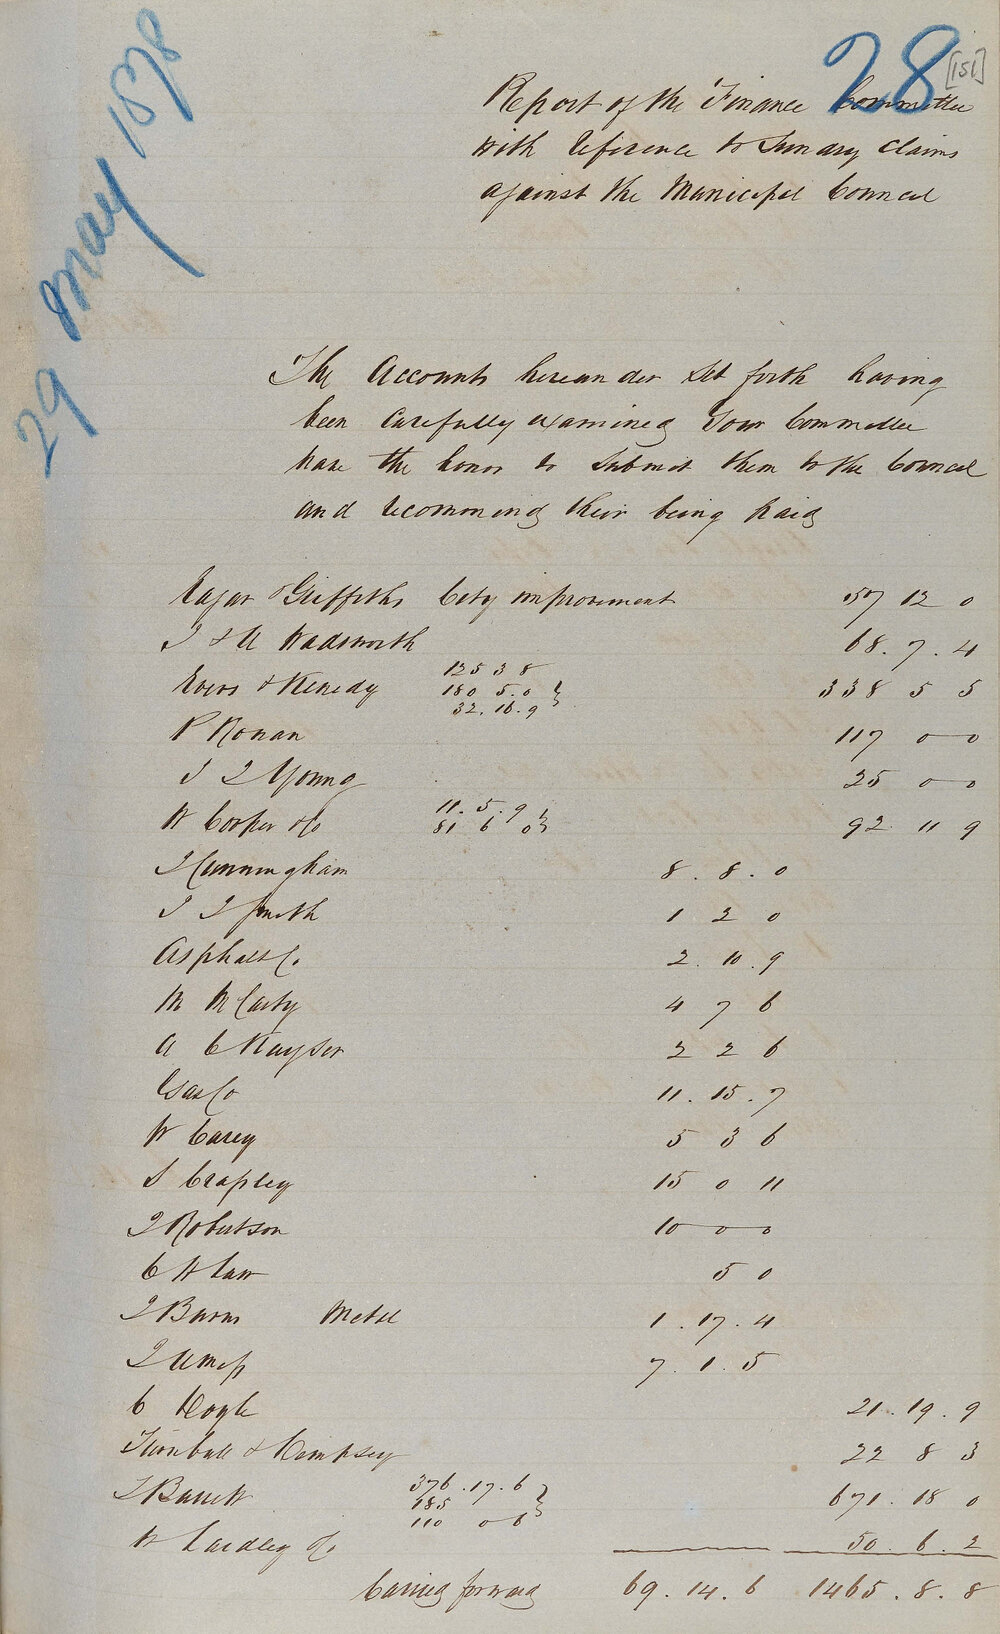 29 May 1878
28
[151]
Report of the Finance Committee
with reference to Sundry Claims
against the Municipal Council
The Accounts hereunder set forth having
been Carefully examined Your Committee
have the honor to Submit them to the Council
and recommend their being paid
Eagar & Griffiths City improvement 57 12 0
J & W Wadsworth 68.7.4
125 3 8
Evers & Kenedy 180 5.0 } 338 5 5
32.16.9
P Ronan 117 0 0
J Young 25 0 0
11.5.9
W Cooper & Co 81 6 0 } 92 11 9
J Cunningham 8.8.0
J J Smith 1 2 0
Asphalt Co 2.10.9
M McCarty 4 7 6
A C Kayser 2 2 6
Gas Co 11.15.7
W Carey 5 3 6
S Crapley 15 0 11
J Robertson 10 0 0
C W Law 5 0
J Burns Metal 1.17.4
J 7.1.5
C Doyle 21.19.9
Turnbull & Dempsey 22 8 3
376.17.6
J Barrett 185 } 671.18 0
110 0 6
W Lardley & Co 50.6.2
Carried forward 69.14.6 1465.8.8